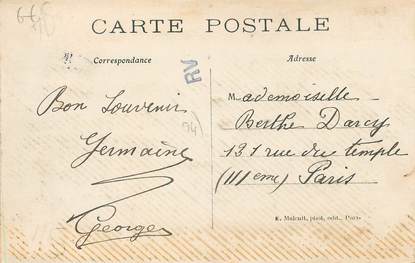 CARTE POSTALE
Correspondance
Adresse
RV
Bon Souvenir
Germaine
Georges
94
Mademoiselle
Berthe Darcy
131 rue du temple
(IIIeme) Paris
E. Malcuit, phot. édit., Paris